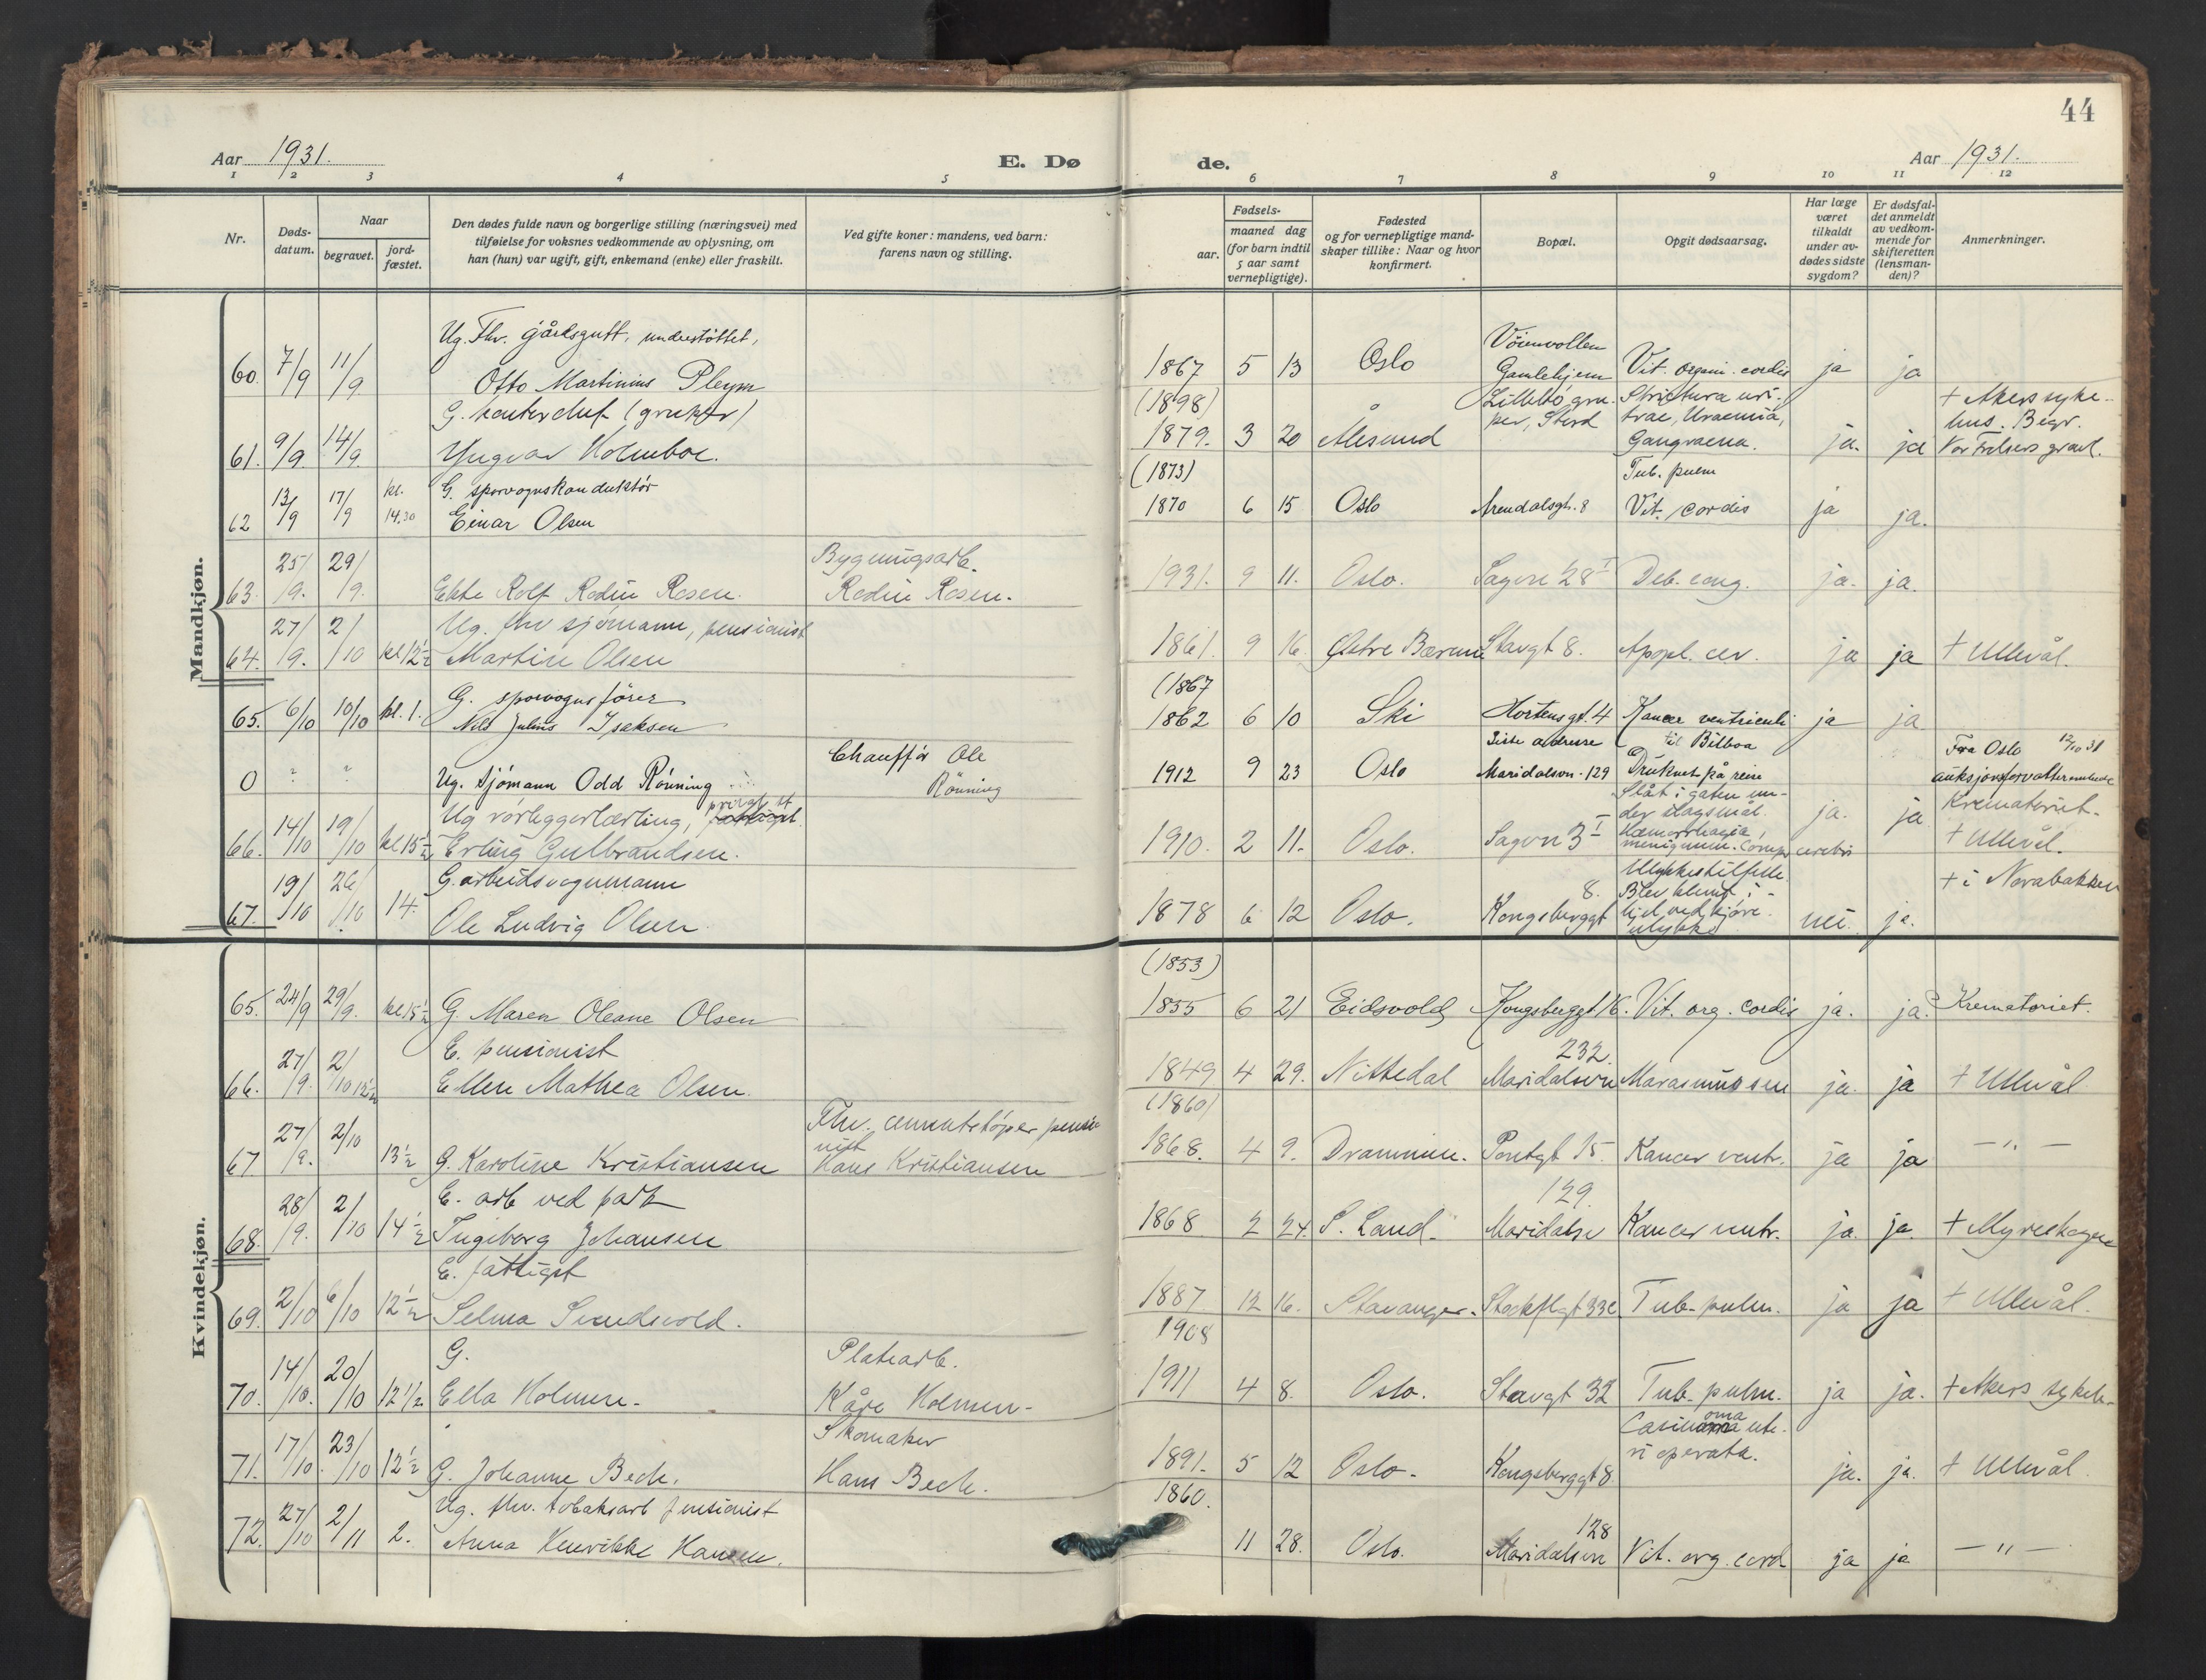 44
Aar 1931. E. Dø de. Aar 1931.
1 2 3 4 5 6 7 8 9 10 11 12
Nr.
Døds-
datum.
Naar
begravet.
jord-
fæstet.
Den dødes fulde navn og borgerlige stilling (næringsvei) med
tilføielse for voksnes vedkommende av oplysning, om
han (hun) var ugift, gift, enkemand (enke) eller fraskilt.
Ved gifte koner: mandens, ved barn:
farens navn og stilling.
Fødsels-
aar.
maaned dag
(for barn indtil
5 aar samt
vernepligtige).
Fødested
og for vernepligtige mand-
skaper tillike: Naar og hvor
konfirmert.
Bopæl.
Opgit dødsaarsag.
Har læge
været
tilkaldt
under av-
dødes sidste
sygdom?
Er dødsfal-
det anmeldt
av vedkom-
mende for
skifteretten
(lensman-
den)?
Anmerkninger.
Mandkjøn.
Ug. Fhv. gårdsgutt, understöttet,
60. 7/9 11/9 Otto Martinius Pleym 1867 5 13 Oslo Vöienvollen Gamlehjem Vit. organ. cordis ja ja
G. kontorchef (gruber)
61. 9/9 14/9 Yngvar Holmboe. (1898) 1879. 3 20 Ålesund Lillebö gruber, Stord Strictura uritrae, Uraemia, Gangraena. ja. ja + Akers sykehus. Begr. Vor Frelsers gravl.
G. sporvognskonduktör
62 13/9 17/9 kl. 14.30 Einar Olsen (1873) 1870 6 15 Oslo Arendalsgt. 8 Tub. pulm Vit. cordis ja ja.
Bygningsarb.
63. 25/9. 29/9. Ekte Rolf Rodin Rosen. Rodin Rosen. 1931. 9 11. Oslo. Sagvn 28 I Deb. cong. ja. ja.
Ug. fhv sjömann, pensionist
64. 27/9. 2/10 kl 12½ Martin Olsen 1861. 9 16. Østre Bærum Stavgt 8. Apopl. cer. ja ja + Ullevål.
G. sporvognsförer
65. 6/10 10/10 kl. 1. Nils Julius Isaksen (1867 1862 6 10 Ski Hortensgt. 4 Kancer ventriculi ja ja
Chauffør Ole
0 ? ? Ug. Sjömann Odd Rönning Rönning 1912 9 23 Oslo Siste adresse Maridalsvn. 129 Druknet på reise til Bilboa Fra Oslo 12/10 31 auksjonsforvalterembede
Ug rörleggerlærling, privat
66. 14/10 19/10 kl 15½ Erling Gulbrandsen. 1910. 2 11. Oslo. Sagvn 3 I Slåt i gaten under slagsmål. Hæmorrhagia, meningum. Comp. cerebri ja. ja Krematoriet. + Ullevål.
G. arbeidsvognmann
67. 19/10 26/10 14. Ole Ludvig Olsen. 1878 6 12 Oslo. Kongsberggt 8. Ulykkestilfelle. Blev klemt ihjel ved kjöreulykke nei. ja. + i Norabakken
Kvindekjøn.
65. 24/9 29/9. kl 15½ G Maren Oleane Olsen (1853) 1855 6 21 Eidsvold Kongsberggt. 16. Vit. org. cordis ja. ja. Krematoriet.
E. pensionist
66. 27/9. 2/10 12½ Ellen Mathea Olsen. 1849 4 29. Nittedal Maridalsvn 232. Marasmus sen ja. ja + Ullevål
Fhv. cementstöper pensionist
67 27/9. 2/10 13½ G. Karoline Kristiansen Hans Kristiansen (1860) 1868. 4 9. Drammen. Pontgt 15. Kancer ventr. ja ja — " —
E. arb ved park
68. 28/9. 2/10 14½ Ingeborg Johansen 1868 2 24. S. Land. Maridalsv 129. Kancer ventr. ja. ja. +
E. fattigst
69. 2/10 6/10 12½ Selma Svendsvold. 1887 12 16. Stavanger. Stockflgt 33c Tub. pulm. ja ja + Ullevål.
G. Platearb.
70. 14/10. 20/10 12½ Ella Holmen. Kåre Holmen. 1908 1911 4 8. Oslo. Stavgt 32 Tub. pulm. ja ja. + Akers sykeh.
Skomaker
71. 17/10. 23/10 12½ G. Johanne Bech. Hans Bech. 1891. 5 12 Oslo. Kongsberggt 8 Carcinoma uteri operata. ja. ja. + Ullevål.
Ug. fhv. tobaksarb pensionist
72. 27/10 2/11 2. Anna Henrikke Hansen. 1860. 11 28. Oslo. Maridalsvn 128 Vit. org. cord ja ja — " —